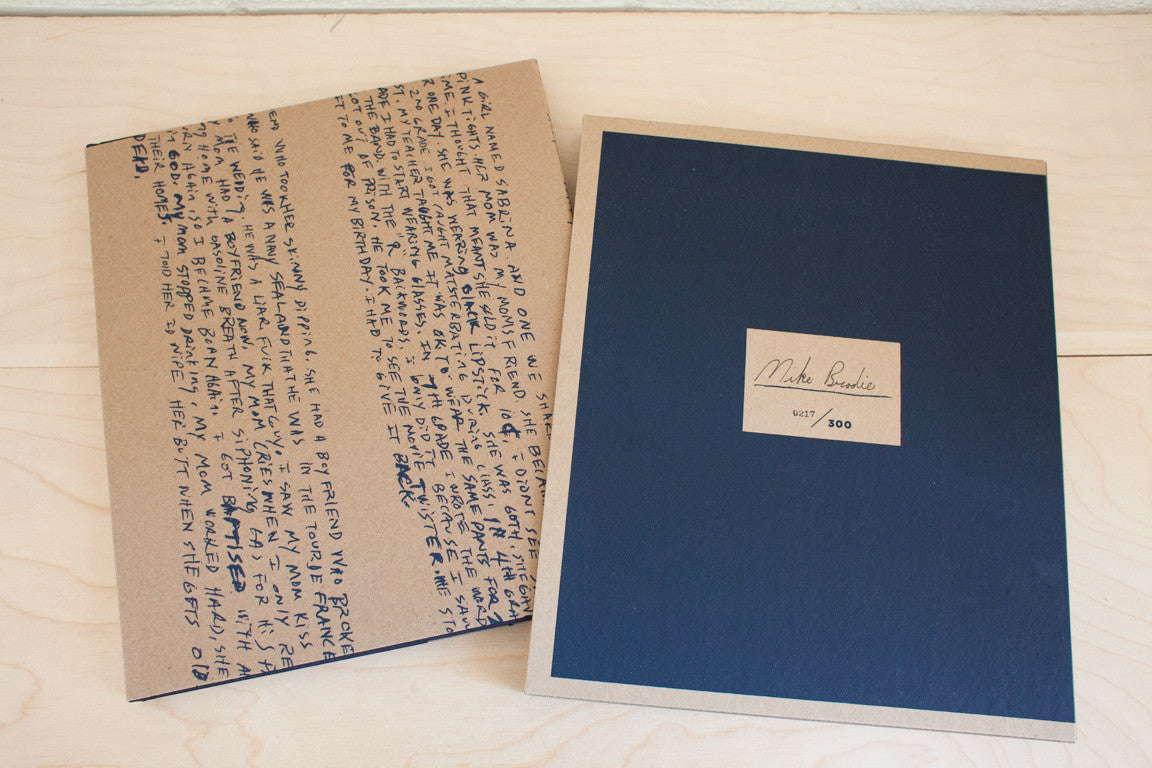 A GIRL NAMED SABRINA AND ONE WE
PINK TIGHTS HER MOM WAS MY MOMS FRIEND. SHE
I THOUGHT THAT MEANT SHE SOLD IT FOR 10¢. I DIDNT SEE
ONE DAY SHE WAS WEARING BLACK LIPSTICK. SHE WAS GOTH.
2ND GRADE I GOT CAUGHT MAISTERBATING DURING CLASS. IN 4TH
MY TEACHER TAUGHT ME IT WAS OK TO WEAR THE SAME PANTS FOR 2
I HAD TO START WEARING GLASSES. IN 7TH GRADE I WROTE THE WORD
THE BAND, WITH THE 'R' BACKWORDS. I ONLY DID IT BECAUSE I SAW
OUT OF PRISON. HE TOOK ME TO SEE THE MOVIE TWISTER. HE
IT TO ME FOR MY BIRTHDAY. I HAD TO GIVE IT BACK.
END WHO TOOK HER SKINNY DIPPING. SHE HAD A BOYFRIEND WHO BROKE
WHO SAID HE WAS A NAVY SEAL AND THAT HE WAS IN THE TOUR DE FRANCE
THE WEDDING. HE WAS A LIAR FUCK THAT GUY. I SAW MY MOM KISS
MOM HAD A BOYFRIEND NOW. MY MOM CRIES WHEN I ONLY RE
HOME WITH GASOLINE BREATH AFTER SIPHONING GAS FOR HIS
AGAIN, SO I BECAME BORN AGAIN. I GOT BAPTISED WITH
IN GOD. MY MOM STOPPED DRINKING. MY MOM WORKED HARD, SHE
THEIR HOMES. I TOLD HER ID WIPE HER BUTT WHEN SHE GETS OLD
DEAD.
Mike Brodie
0217/300